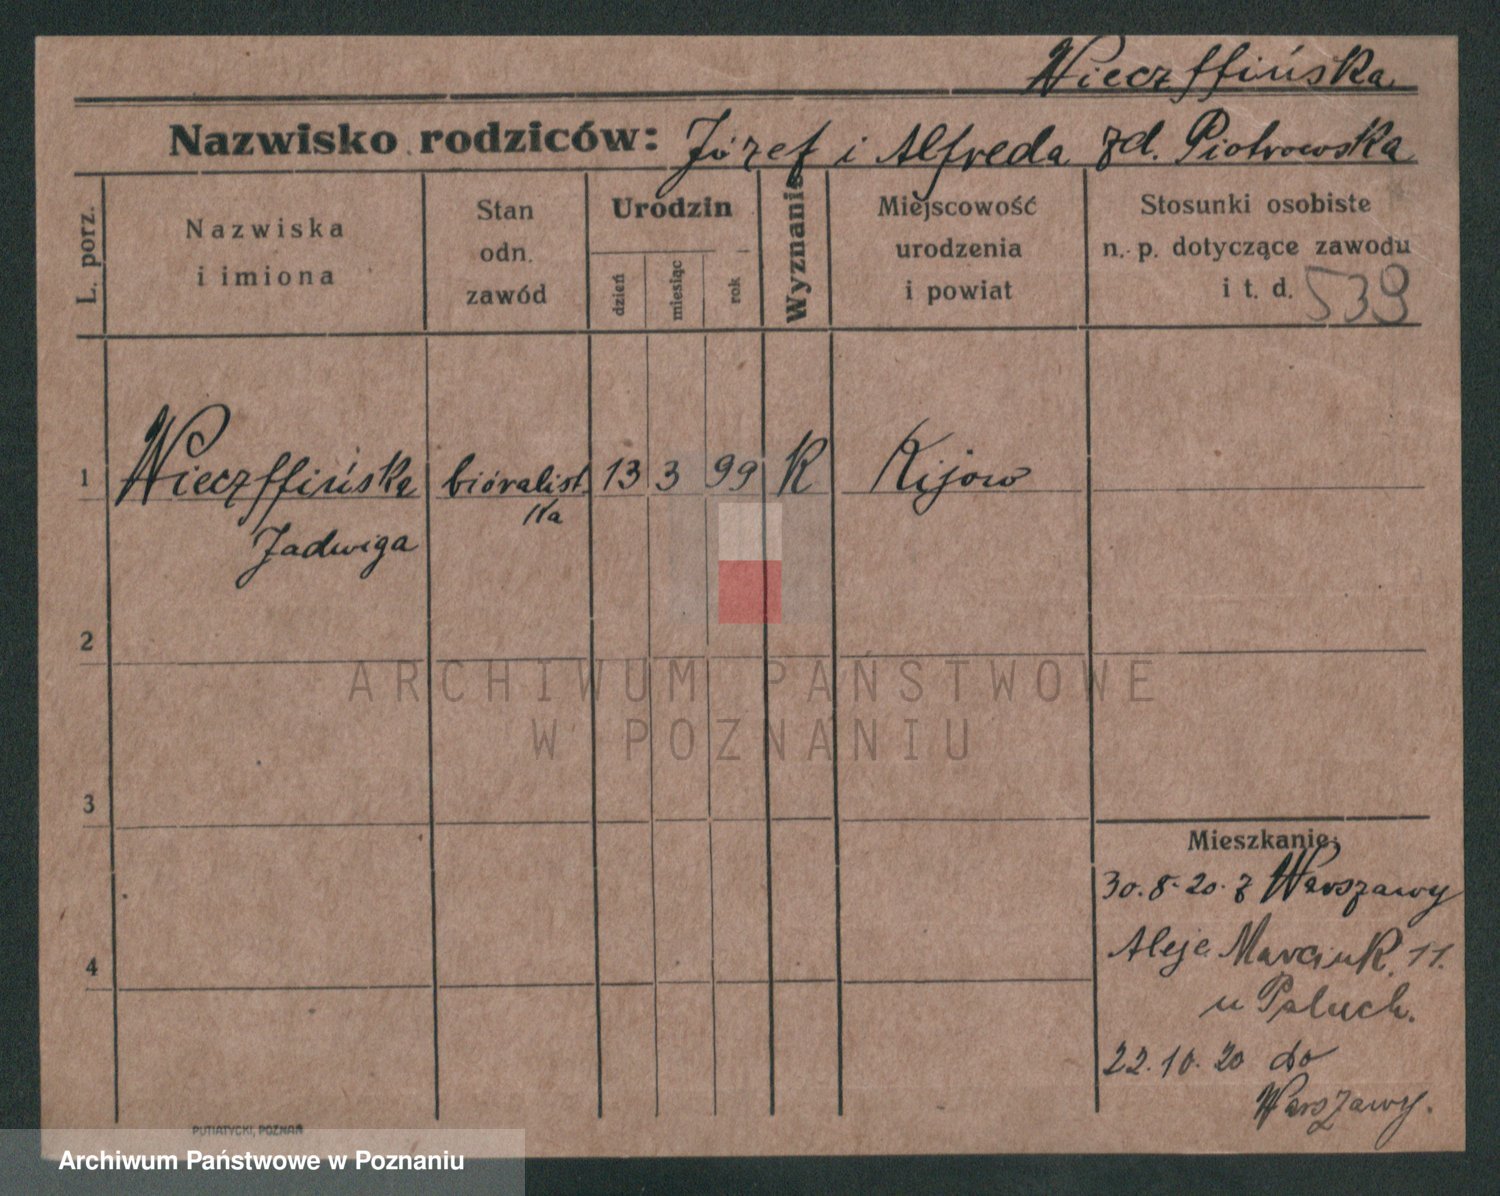 Wieczffińska
Nazwisko rodziców: Józef i Alfreda zd. Piotrowska
L. porz.
Nazwiska
i imiona
Stan
odn.
zawód
Urodzin
dzień
miesiąc
rok
Wyznanie
Miejscowość
urodzenia
i powiat
Stosunki osobiste
n. p. dotyczące zawodu
i t. d. 539
1 Wieczffińska bióralist 13 3 99 K Kijow
Jadwiga
2
ARCHIWUM PAŃSTWOWE
W POZNANIU
3
Mieszkanie:
30.8.20. z Warszawy
Aleje Marcink. 11.
4
u Paluch.
22.10.20 do
Warszawy.
PUTIATYCKI, POZNAŃ
Archiwum Państwowe w Poznaniu